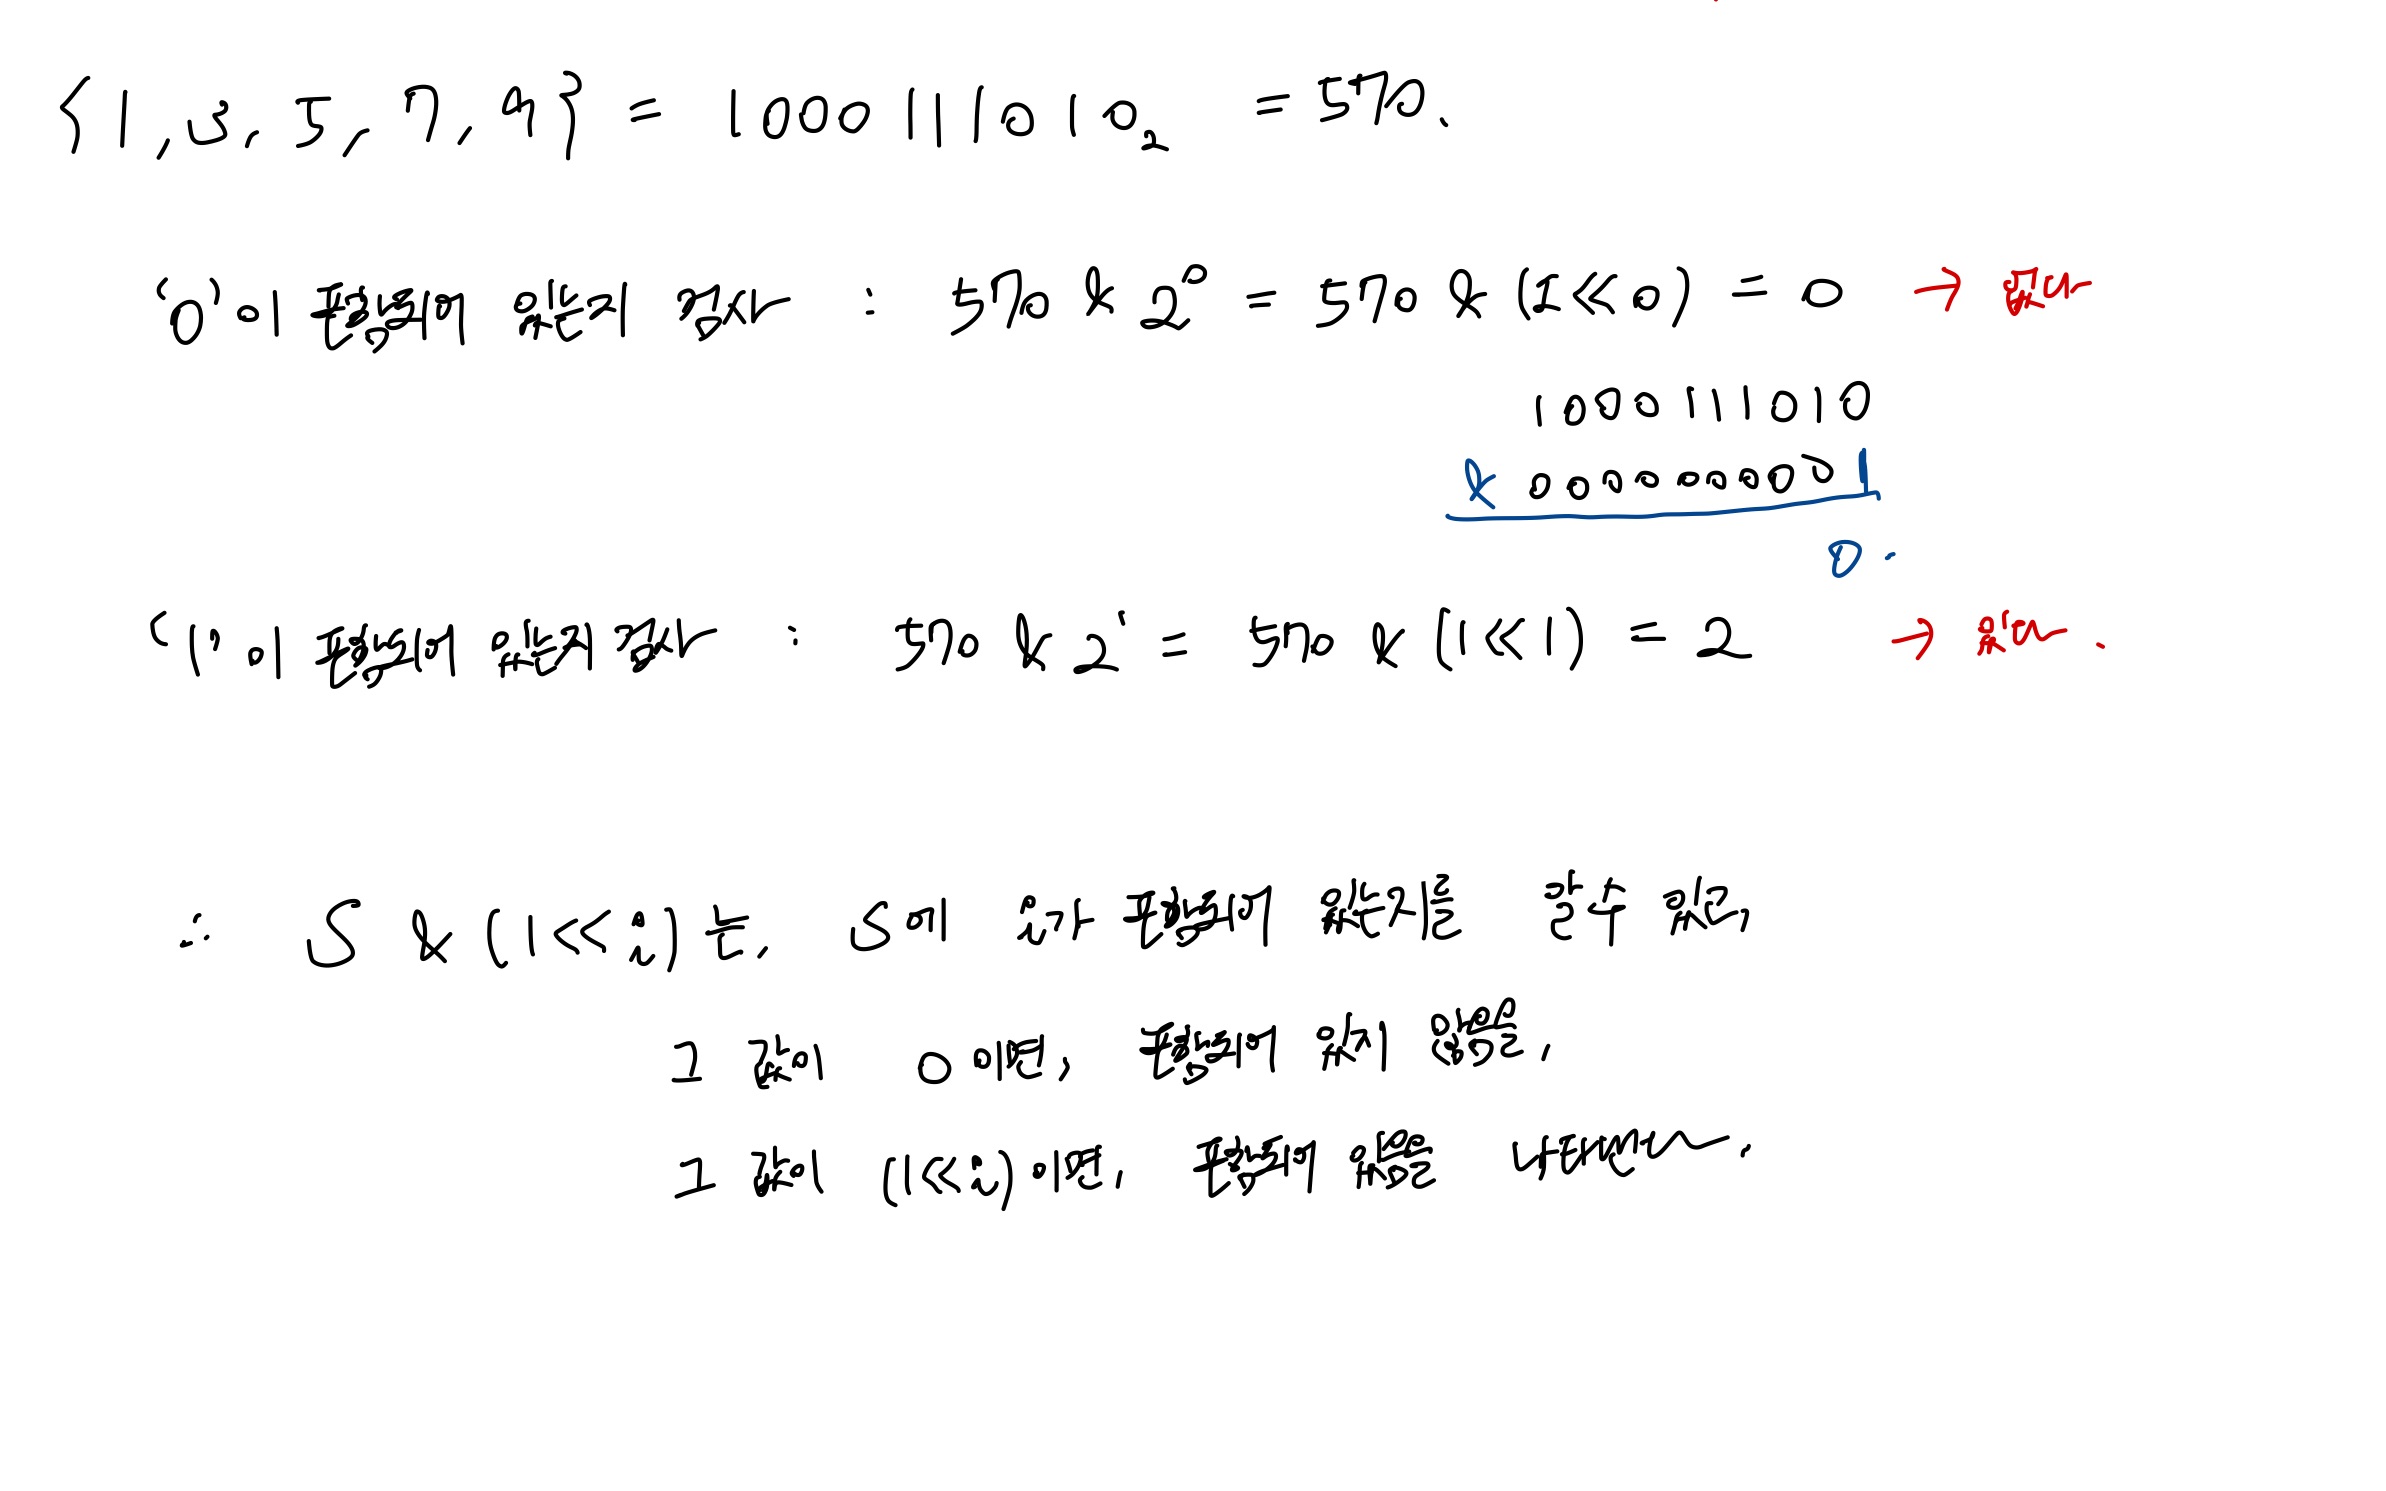 {1, 3, 5, 7, 9} = 1000111010₂ = 570.
'0'이 포함되어 있는지 검사 : 570 & 2⁰ = 570 & (1<<0) = 0 → 없다
1000111010
& 0000000001
0.
'1'이 포함되어 있는지 검사 : 570 & 2¹ = 570 & (1<<1) = 2 → 있다.
∴ S & (1<<i)는, S에 i가 포함되어 있는지를 알 수 있고,
그 값이 0이면, 포함되어 있지 않음,
그 값이 (1<<i)이면, 포함되어 있음을 나타낸다.